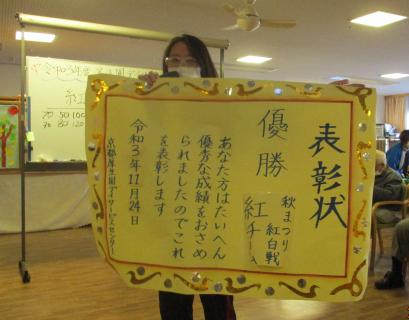 表彰状
秋まつり
紅白戦
紅チーム
優勝
あなた方はたいへん
優秀な成績をおさめ
られましたのでこれ
を表彰します
令和3年11月24日
紅
70 50 100
70 80 120